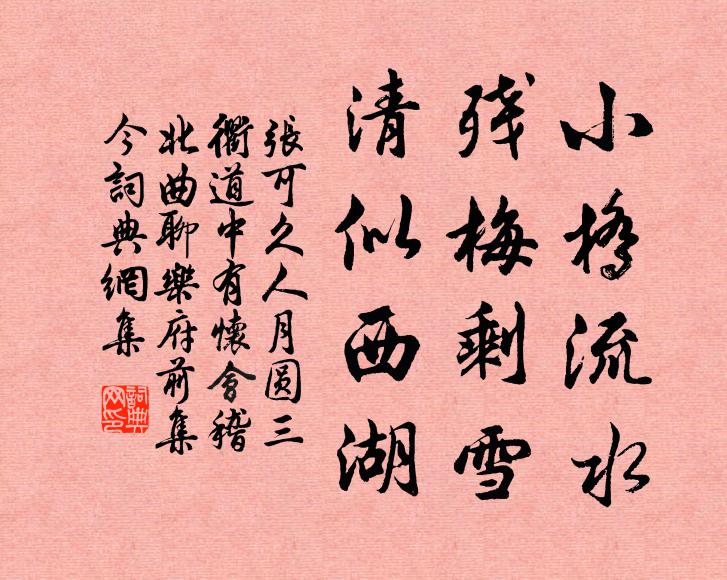 小橋流水
残梅剩雪
清似西湖
張可久人月圆三
衢道中有懷會稽
北曲聊樂府前集
今詞典網集
詞典
网印